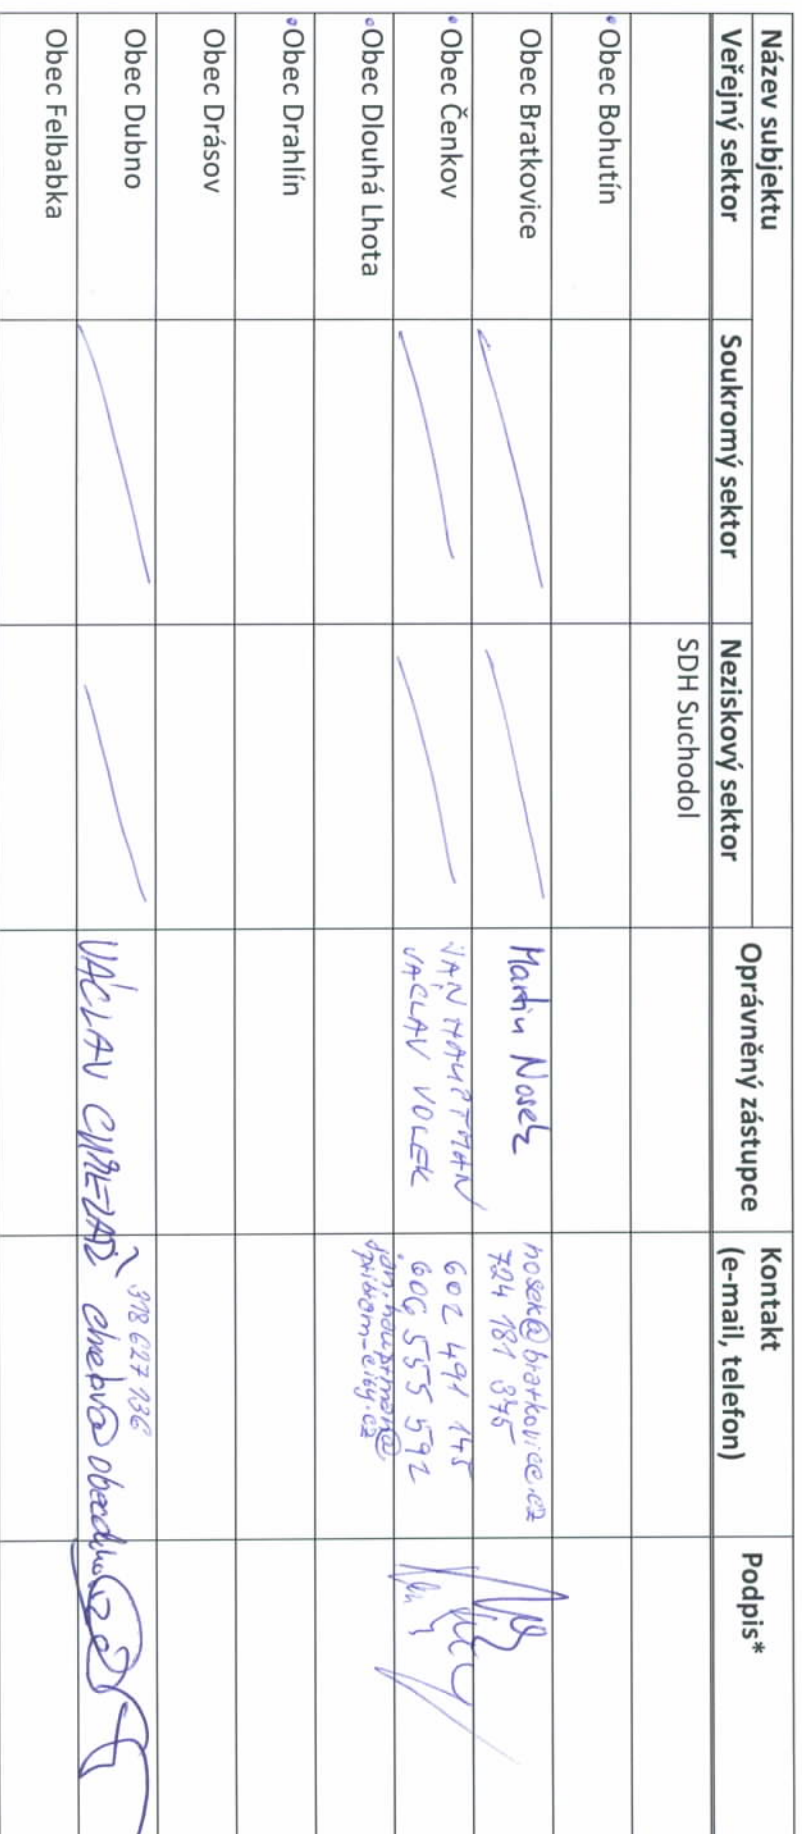 Název subjektu
Oprávněný zástupce
Kontakt
(e-mail, telefon)
Podpis*
Veřejný sektor
Soukromý sektor
Neziskový sektor
SDH Suchodol
Obec Bohutín
Obec Bratkovice
Martin Nosek
nosek@bratkovice.cz
724 181 375
Obec Čenkov
JAN HAUPTMAN
602 491 145
VÁCLAV VOLEK
606 555 592
jan.hauptman@
pribram-city.cz
Obec Dlouhá Lhota
Obec Drahlín
Obec Drásov
Obec Dubno
318 627 136
VÁCLAV
Obec Felbabka